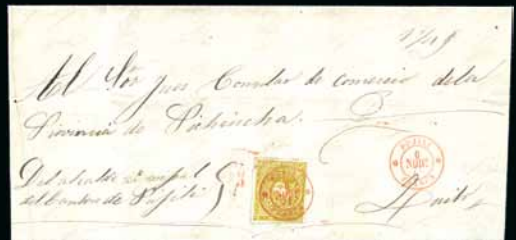 Al Sor Juez Consular de comercio de la
Provincia de Pichincha.
Del alcalde municipal
del Canton de Pujili
PUJILI
6
NOBE
Quito